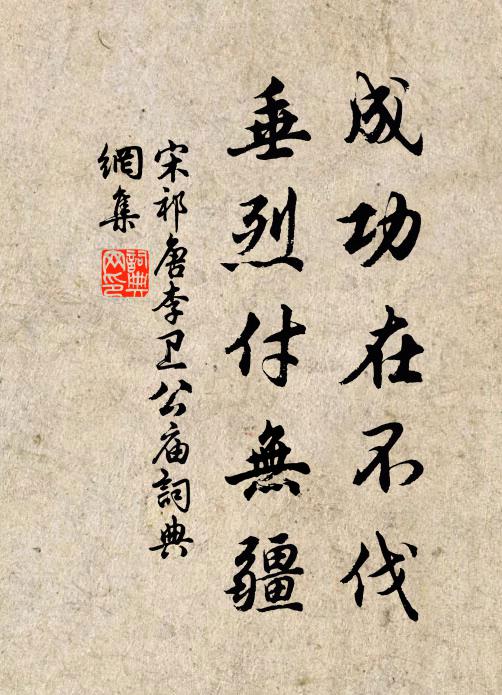 成功在不伐
垂烈付無疆
宋祁唐李卫公庙詞典
網集
詞典
网印